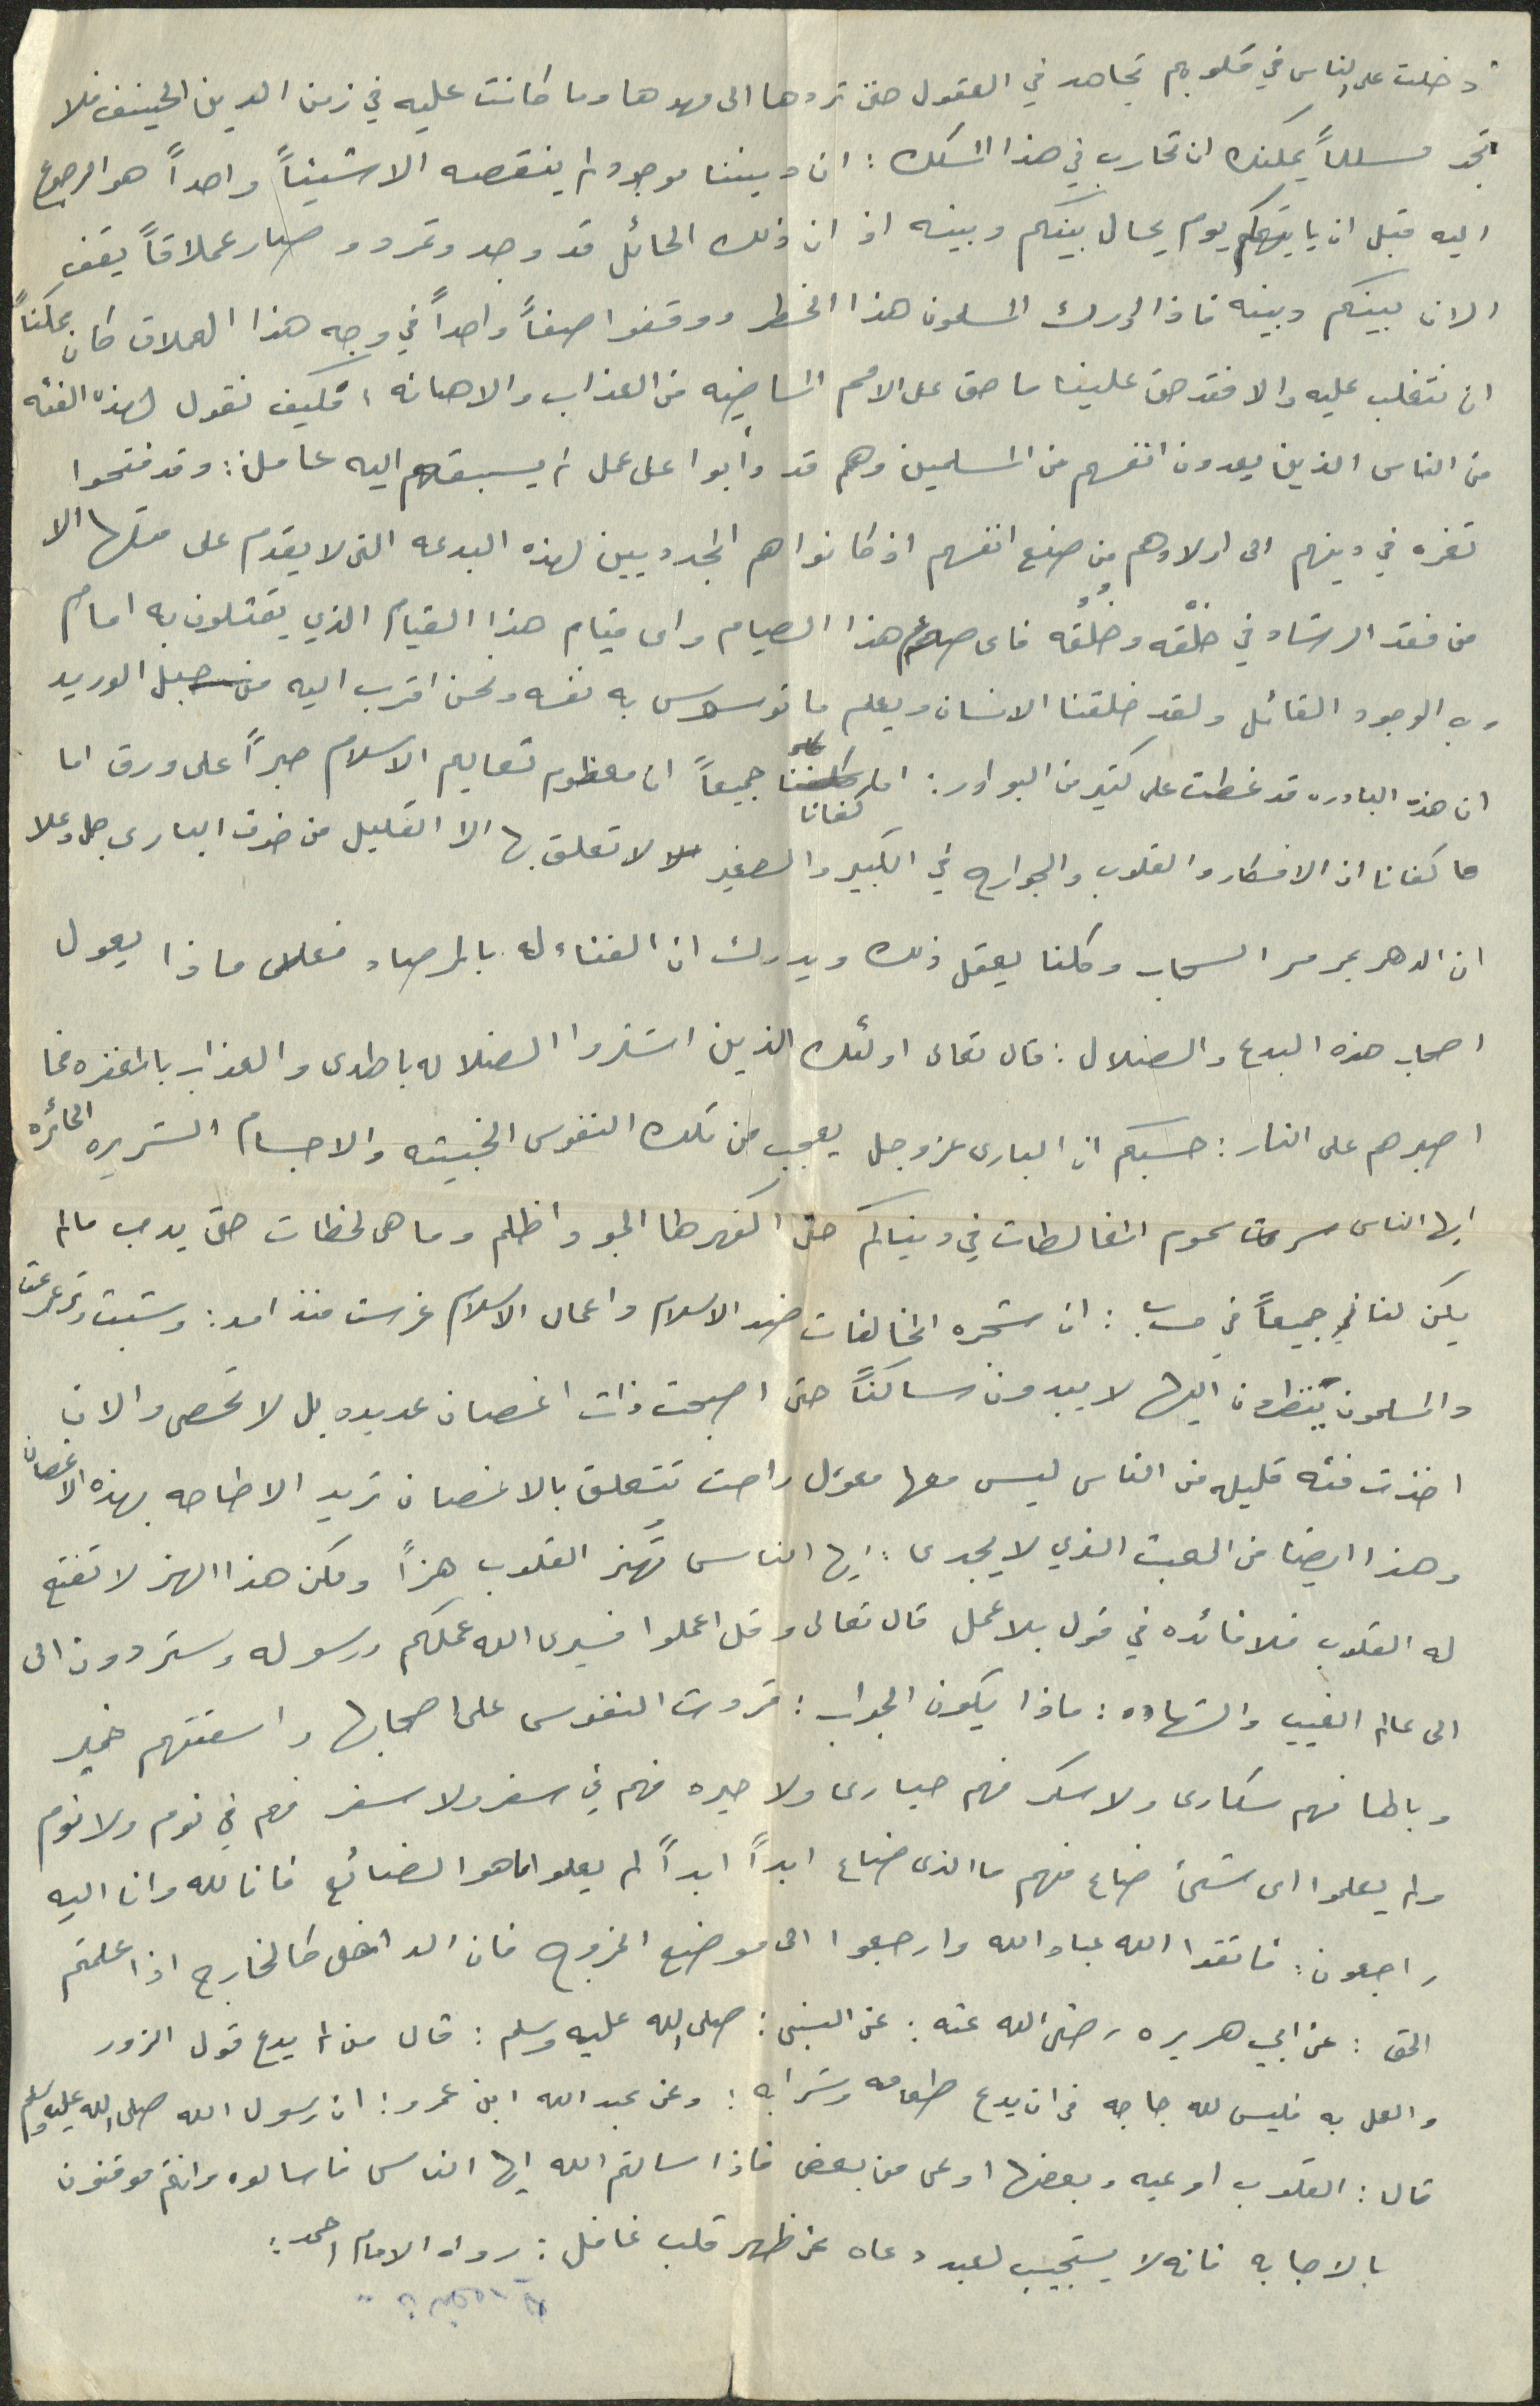 دخلت على الناس في قلوبهم تجاهد في العقول حتى تردها الى مهدها وما كانت عليه في زمن الدين الحنيف فلا
تجد مسلماً يمكنه ان تحارب في هذا المسلك : ان ديننا موجود لم ينقصه الا شيئاً واحداً هو الرجوع
اليه قبل ان يأتيكم يوم يحال بينكم وبينه اذ ان ذلك الحائل قد وجد وتمرد وصار عملاقاً يقف
الان بينكم وبينه فاذا ادرك المسلمون هذا الخطر ووقفوا صفاً واحداً في وجه هذا العملاق كان ممكناً
ان نتغلب عليه والا فقد حق علينا ما حق على الامم الماضيه من العذاب والاهانه ، فكيف نقول لهذه الفئه
من الناس الذين يعدون انفسهم من المسلمين وهم قد دأبوا على عمل لم يسبقهم اليه عامل : وقد فتحوا
ثغره في دينهم الى اولادهم من صنع انفسهم اذ كانوا هم الجديين لهذه البدعه التى لا يقدم على مثلها الا
من فقد الرشاد في خَلْقه وخُلُقه فاى صيام هذا الصيام واى قيام هذا القيام الذي يمثلون به امام
رب الوجود القائل ولقد خلقنا الانسان ويعلم ما توسوس به نفسه ونحن اقرب اليه من حبل الوريد
ان هذه البادره قد غطت على كثير من البوادر : اما كفانا جميعاً ان معظم تعاليم الاسلام حبراً على ورق اما
ما كفانا ان الافكار والقلوب والجوارح في الكبير والصغير لا تعلق بها الا القليل من خوف البارى جل وعلا
ان الدهر يمر مر السحاب وكلنا يعقل ذلك ويدرك ان الفناء له بالمرصاد فعلى ماذا يعول
اصحاب هذه البدع والضلال : قال تعالى اولئك الذين اشتروا الضلاله بالهدى والعذاب بالمغفره فما
اصبرهم على النار : حسبكم ان البارى عز وجل يعجب من تلك النفوس الخبيثه والاجسام الشريره الحائره
ايها الناس سرت سموم المغالطات في دنياكم حتى اكفهر لها الجو واظلم وما هى لحظات حتى يدب مالم
يكن لنا جميعاً في حساب : ان شجره المخالفات ضد الاسلام واعمال الاسلام غرست منذ امد : وشبت وترعرعت
والمسلمون ينظرون اليها لا يبدون ساكناً حتى اصبحت ذات اغصان عديده بل لا تحصى والان
اخذت فئه قليله من الناس ليس معها معول راحت تتعلق بالاغصان تريد الاطاحه بهذه الاغصان
وهذا ايضا من العبث الذي لا يجدى : ايها الناس تُهز القلوب هزاً ولكن هذا الهز لا تفتح
له القلوب فلا فائده في قول بلا عمل قال تعالى وقل اعملوا فسيرى الله عملكم ورسوله وستردون الى
الى عالم الغيب والشهاده : ماذا يكون الجواب : تمردت النفوس على اصحابها واسقتهم خمير
وبالها فهم سكارى ولا سكر فهم حيارى ولا حيره فهم في سفر ولا سفر فهم في نوم ولا نوم
ولم يعلموا اى شىء ضاع منهم ما الذى ضاع ابداً ابداً لم يعلموا ما هو الضائع فانا لله وانا اليه
راجعون : فاتقوا الله عباد الله وارجعوا الى موضع الخروج فان الداخل كالخارج اذا علمتم
الحق : عن ابي هريره رضى الله عنه : عن النبى : صلى الله عليه وسلم : قال من لم يدع قول الزور
والعمل به فليس لله حاجه في ان يدع طعامه وشرابه : وعن عبد الله ابن عمرو : ان رسول الله صلى الله عليه وسلم
قال : القلوب اوعيه وبعضها اوعى من بعض فاذا سالتم الله ايها الناس فاسالوه وانتم موقنون
بالاجابه فانه لا يستجيب لعبد دعاه عن ظهر قلب غافل : رواه الامام احمد :